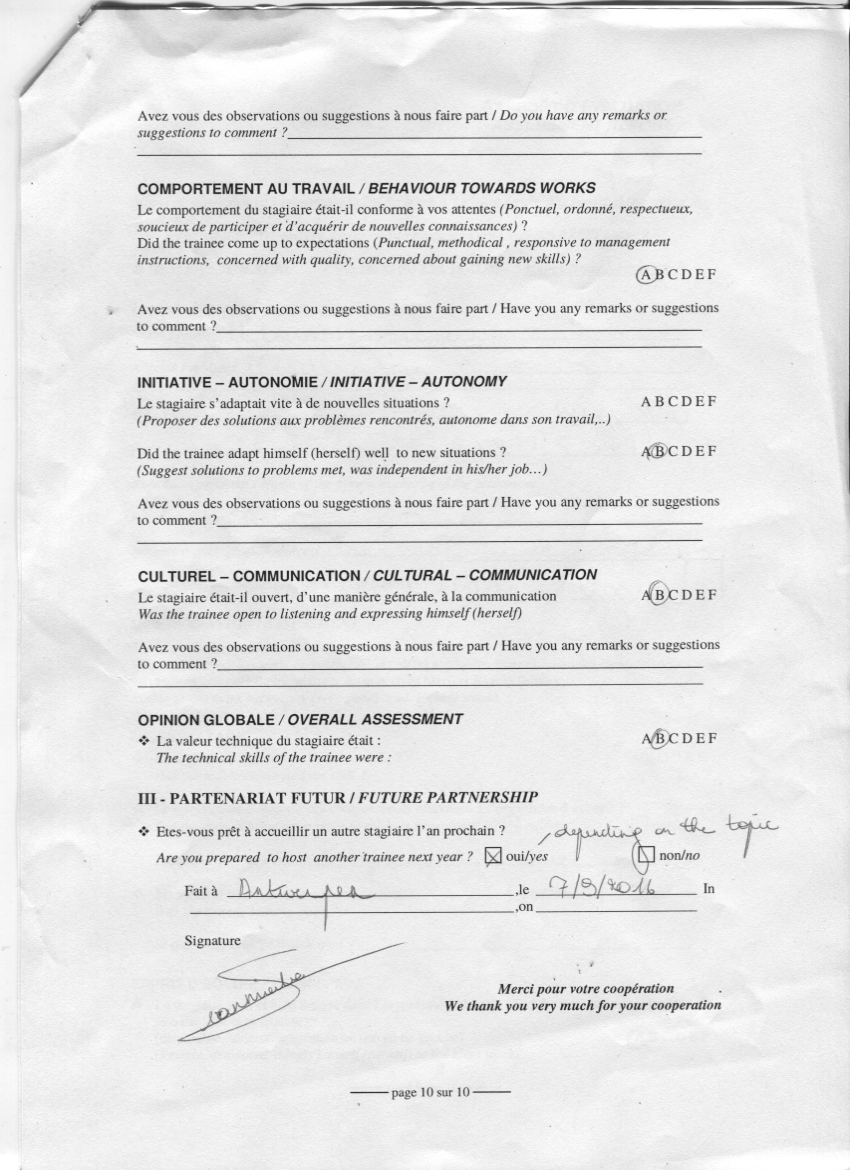 Avez vous des observations ou suggestions à nous faire part / Do you have any remarks or
suggestions to comment ?
COMPORTEMENT AU TRAVAIL / BEHAVIOUR TOWARDS WORKS
Le comportement du stagiaire était-il conforme à vos attentes (Ponctuel, ordonné, respectueux,
soucieux de participer et d'acquérir de nouvelles connaissances) ?
Did the trainee come up to expectations (Punctual, methodical , responsive to management
instructions, concerned with quality, concerned about gaining new skills) ?
A B C D E F
Avez vous des observations ou suggestions à nous faire part / Have you any remarks or suggestions
to comment ?
INITIATIVE – AUTONOMIE / INITIATIVE – AUTONOMY
Le stagiaire s'adaptait vite à de nouvelles situations ? A B C D E F
(Proposer des solutions aux problèmes rencontrés, autonome dans son travail,..)
Did the trainee adapt himself (herself) well to new situations ? A B C D E F
(Suggest solutions to problems met, was independent in his/her job…)
Avez vous des observations ou suggestions à nous faire part / Have you any remarks or suggestions
to comment ?
CULTUREL – COMMUNICATION / CULTURAL – COMMUNICATION
Le stagiaire était-il ouvert, d'une manière générale, à la communication A B C D E F
Was the trainee open to listening and expressing himself (herself)
Avez vous des observations ou suggestions à nous faire part / Have you any remarks or suggestions
to comment ?
OPINION GLOBALE / OVERALL ASSESSMENT
❖ La valeur technique du stagiaire était : A B C D E F
The technical skills of the trainee were :
III - PARTENARIAT FUTUR / FUTURE PARTNERSHIP
❖ Etes-vous prêt à accueillir un autre stagiaire l'an prochain ? , depending on the topic
Are you prepared to host another trainee next year ? ☒ oui/yes ☐ non/no
Fait à Antwerpen ,le 7/9/2016 In
,on
Signature
Merci pour votre coopération
We thank you very much for your cooperation
page 10 sur 10